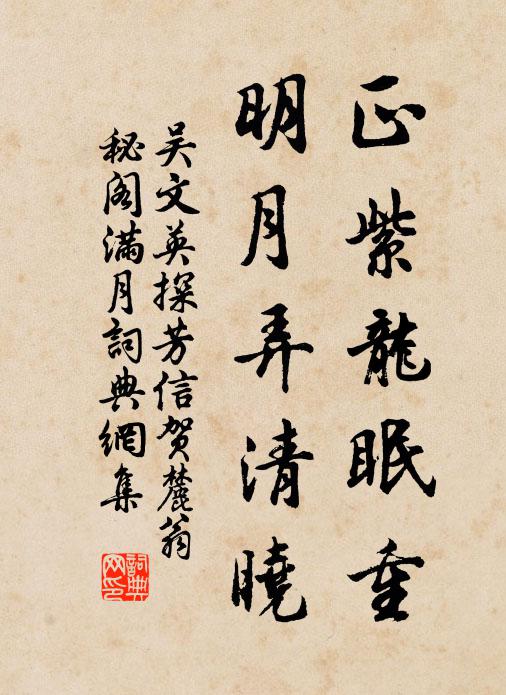 正紫龍眠重
明月弄清曉
吴文英探芳信賀麓翁
秘阁滿月詞典網集
詞典
网印